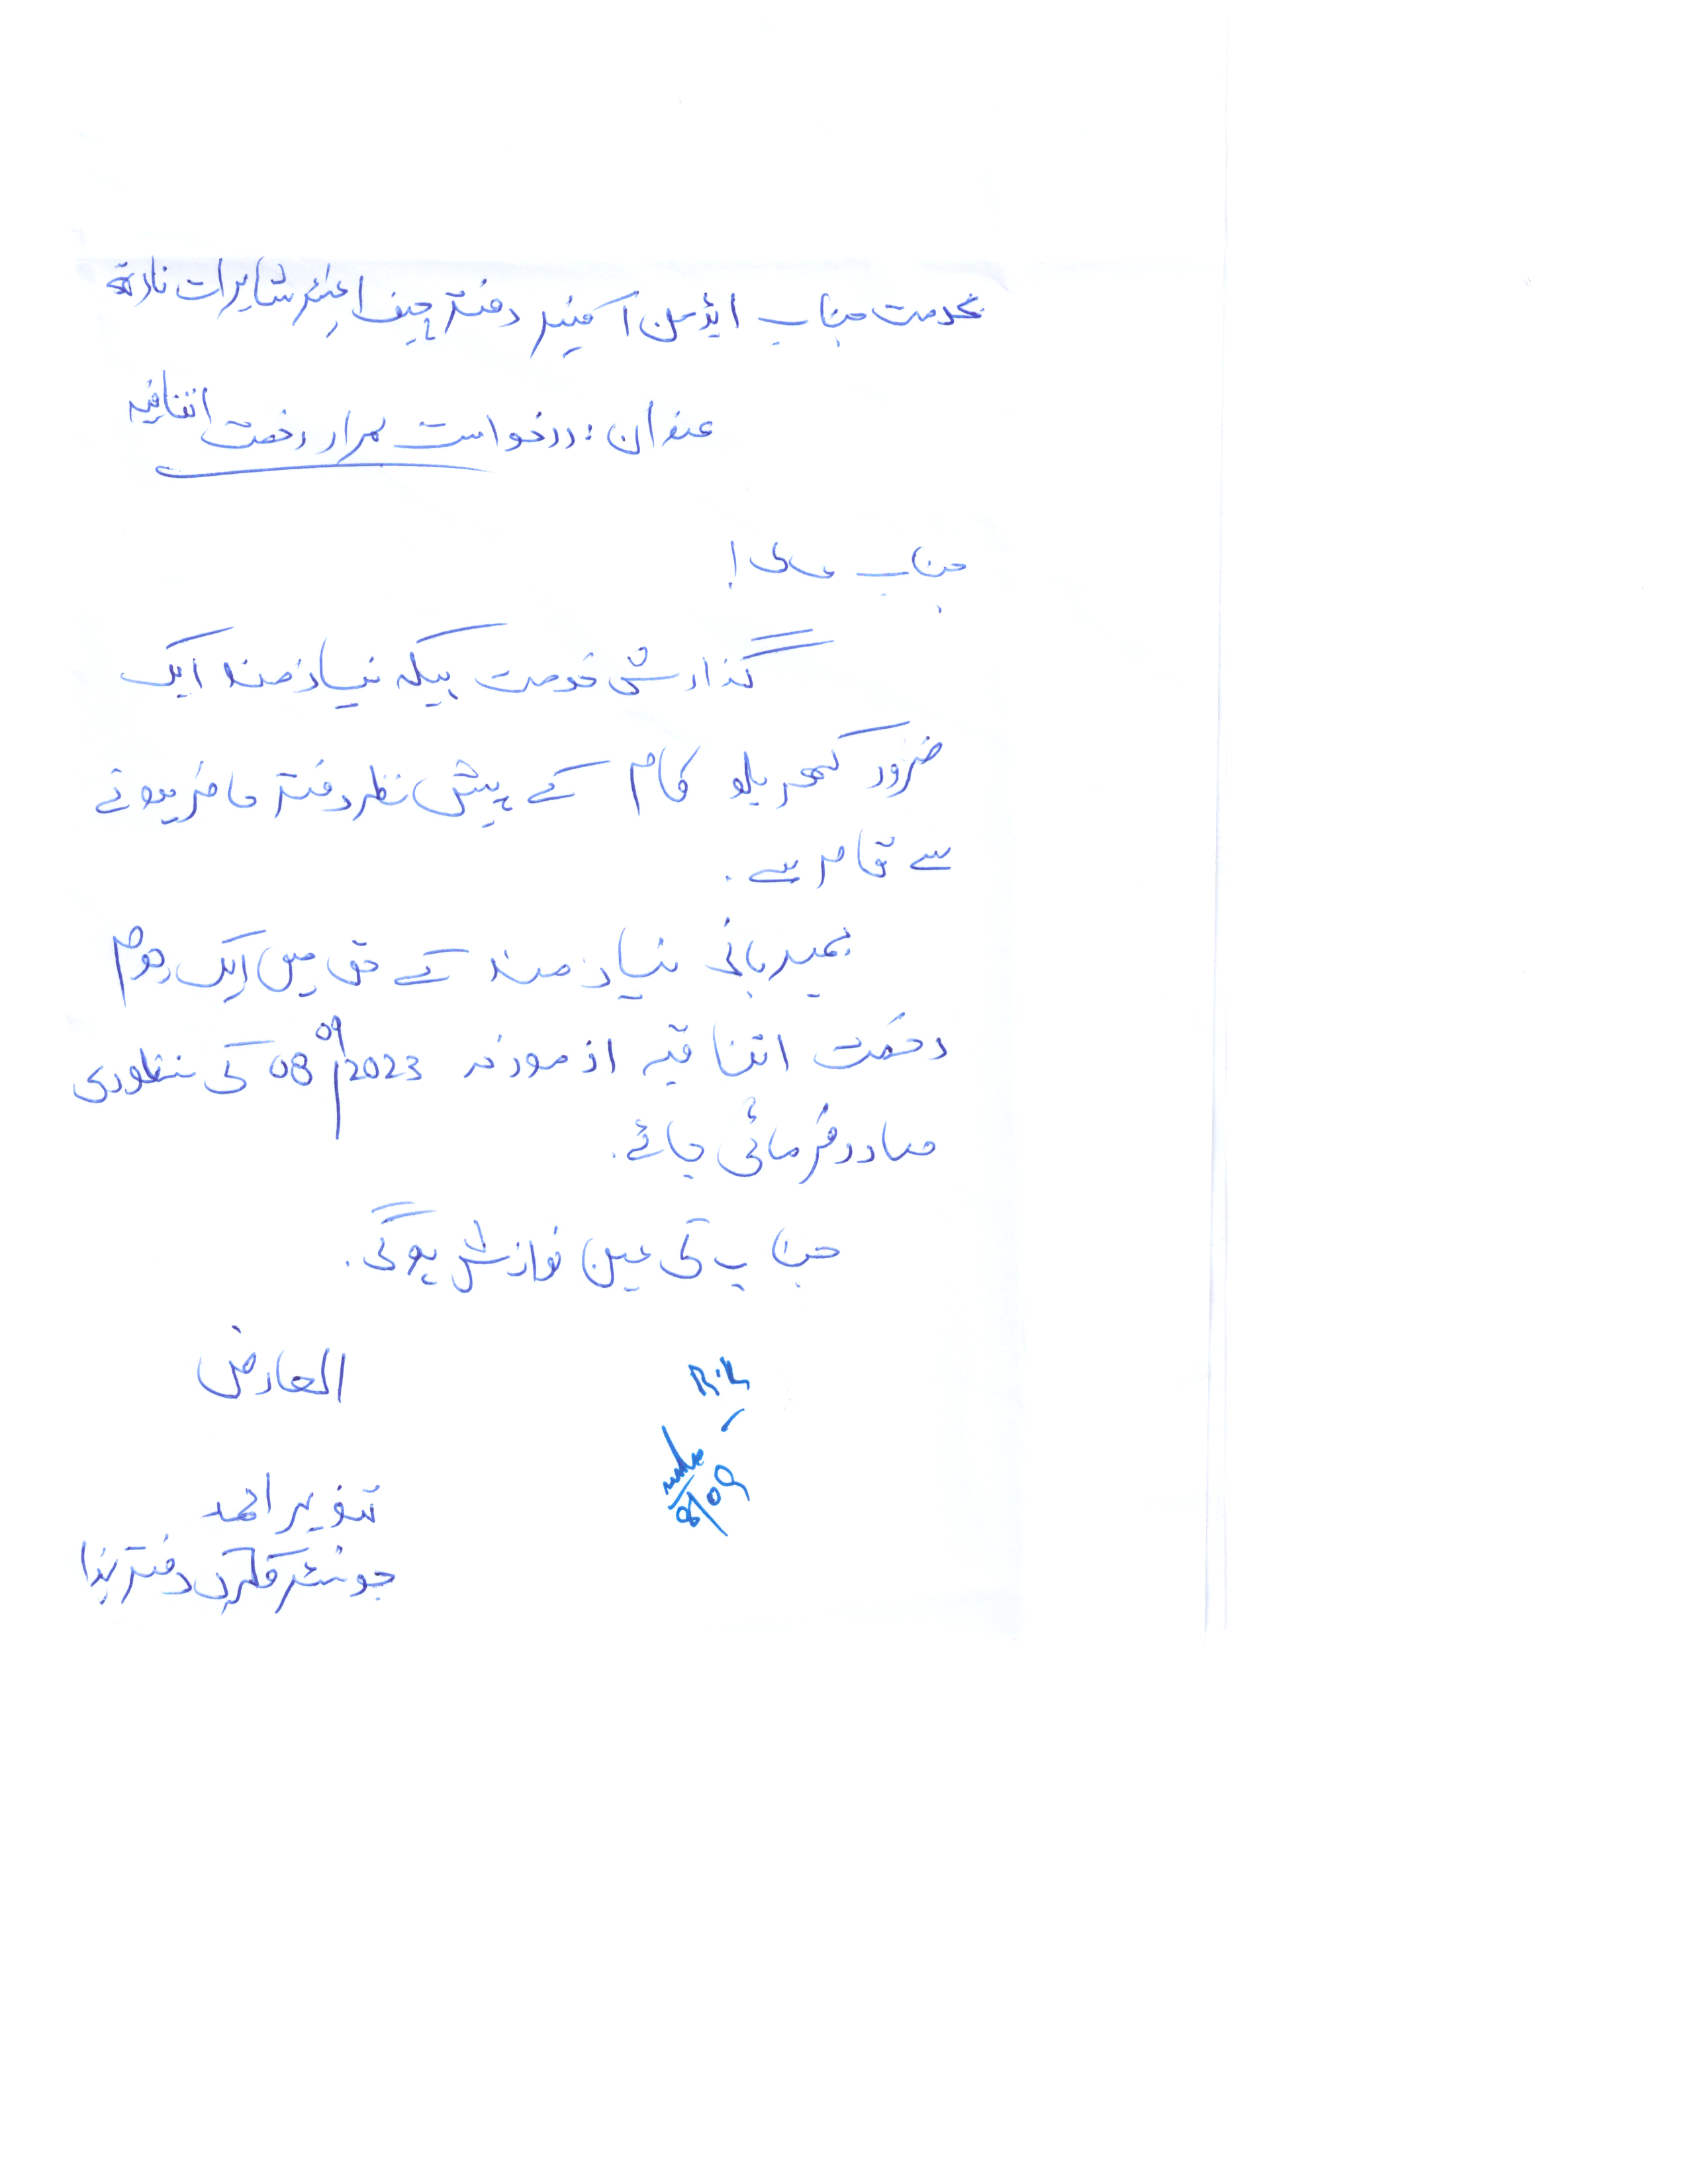 بخدمت جناب ایڈمن آفیسر دفتر چیف انجینئر شاہرات نارتھ
عنوان: درخواست بمراد رخصت اتفاقیہ
جناب عالی!
گذارش خدمت ہیکہ نیازمند ایک
ضرور گھریلو کام کے پیش نظر دفتر حاضر ہونے
سے قاصر ہے.
بمہربانی نیازمند کے حق میں ایک یوم
رخصت اتفاقیہ از مورخہ 08/09/2023 کی منظوری
صادر فرمائی جائے.
جناب کی عین نوازش ہوگی.
العارض
تنویر احمد
جونیئر کلرک دفتر ہذا
8/09